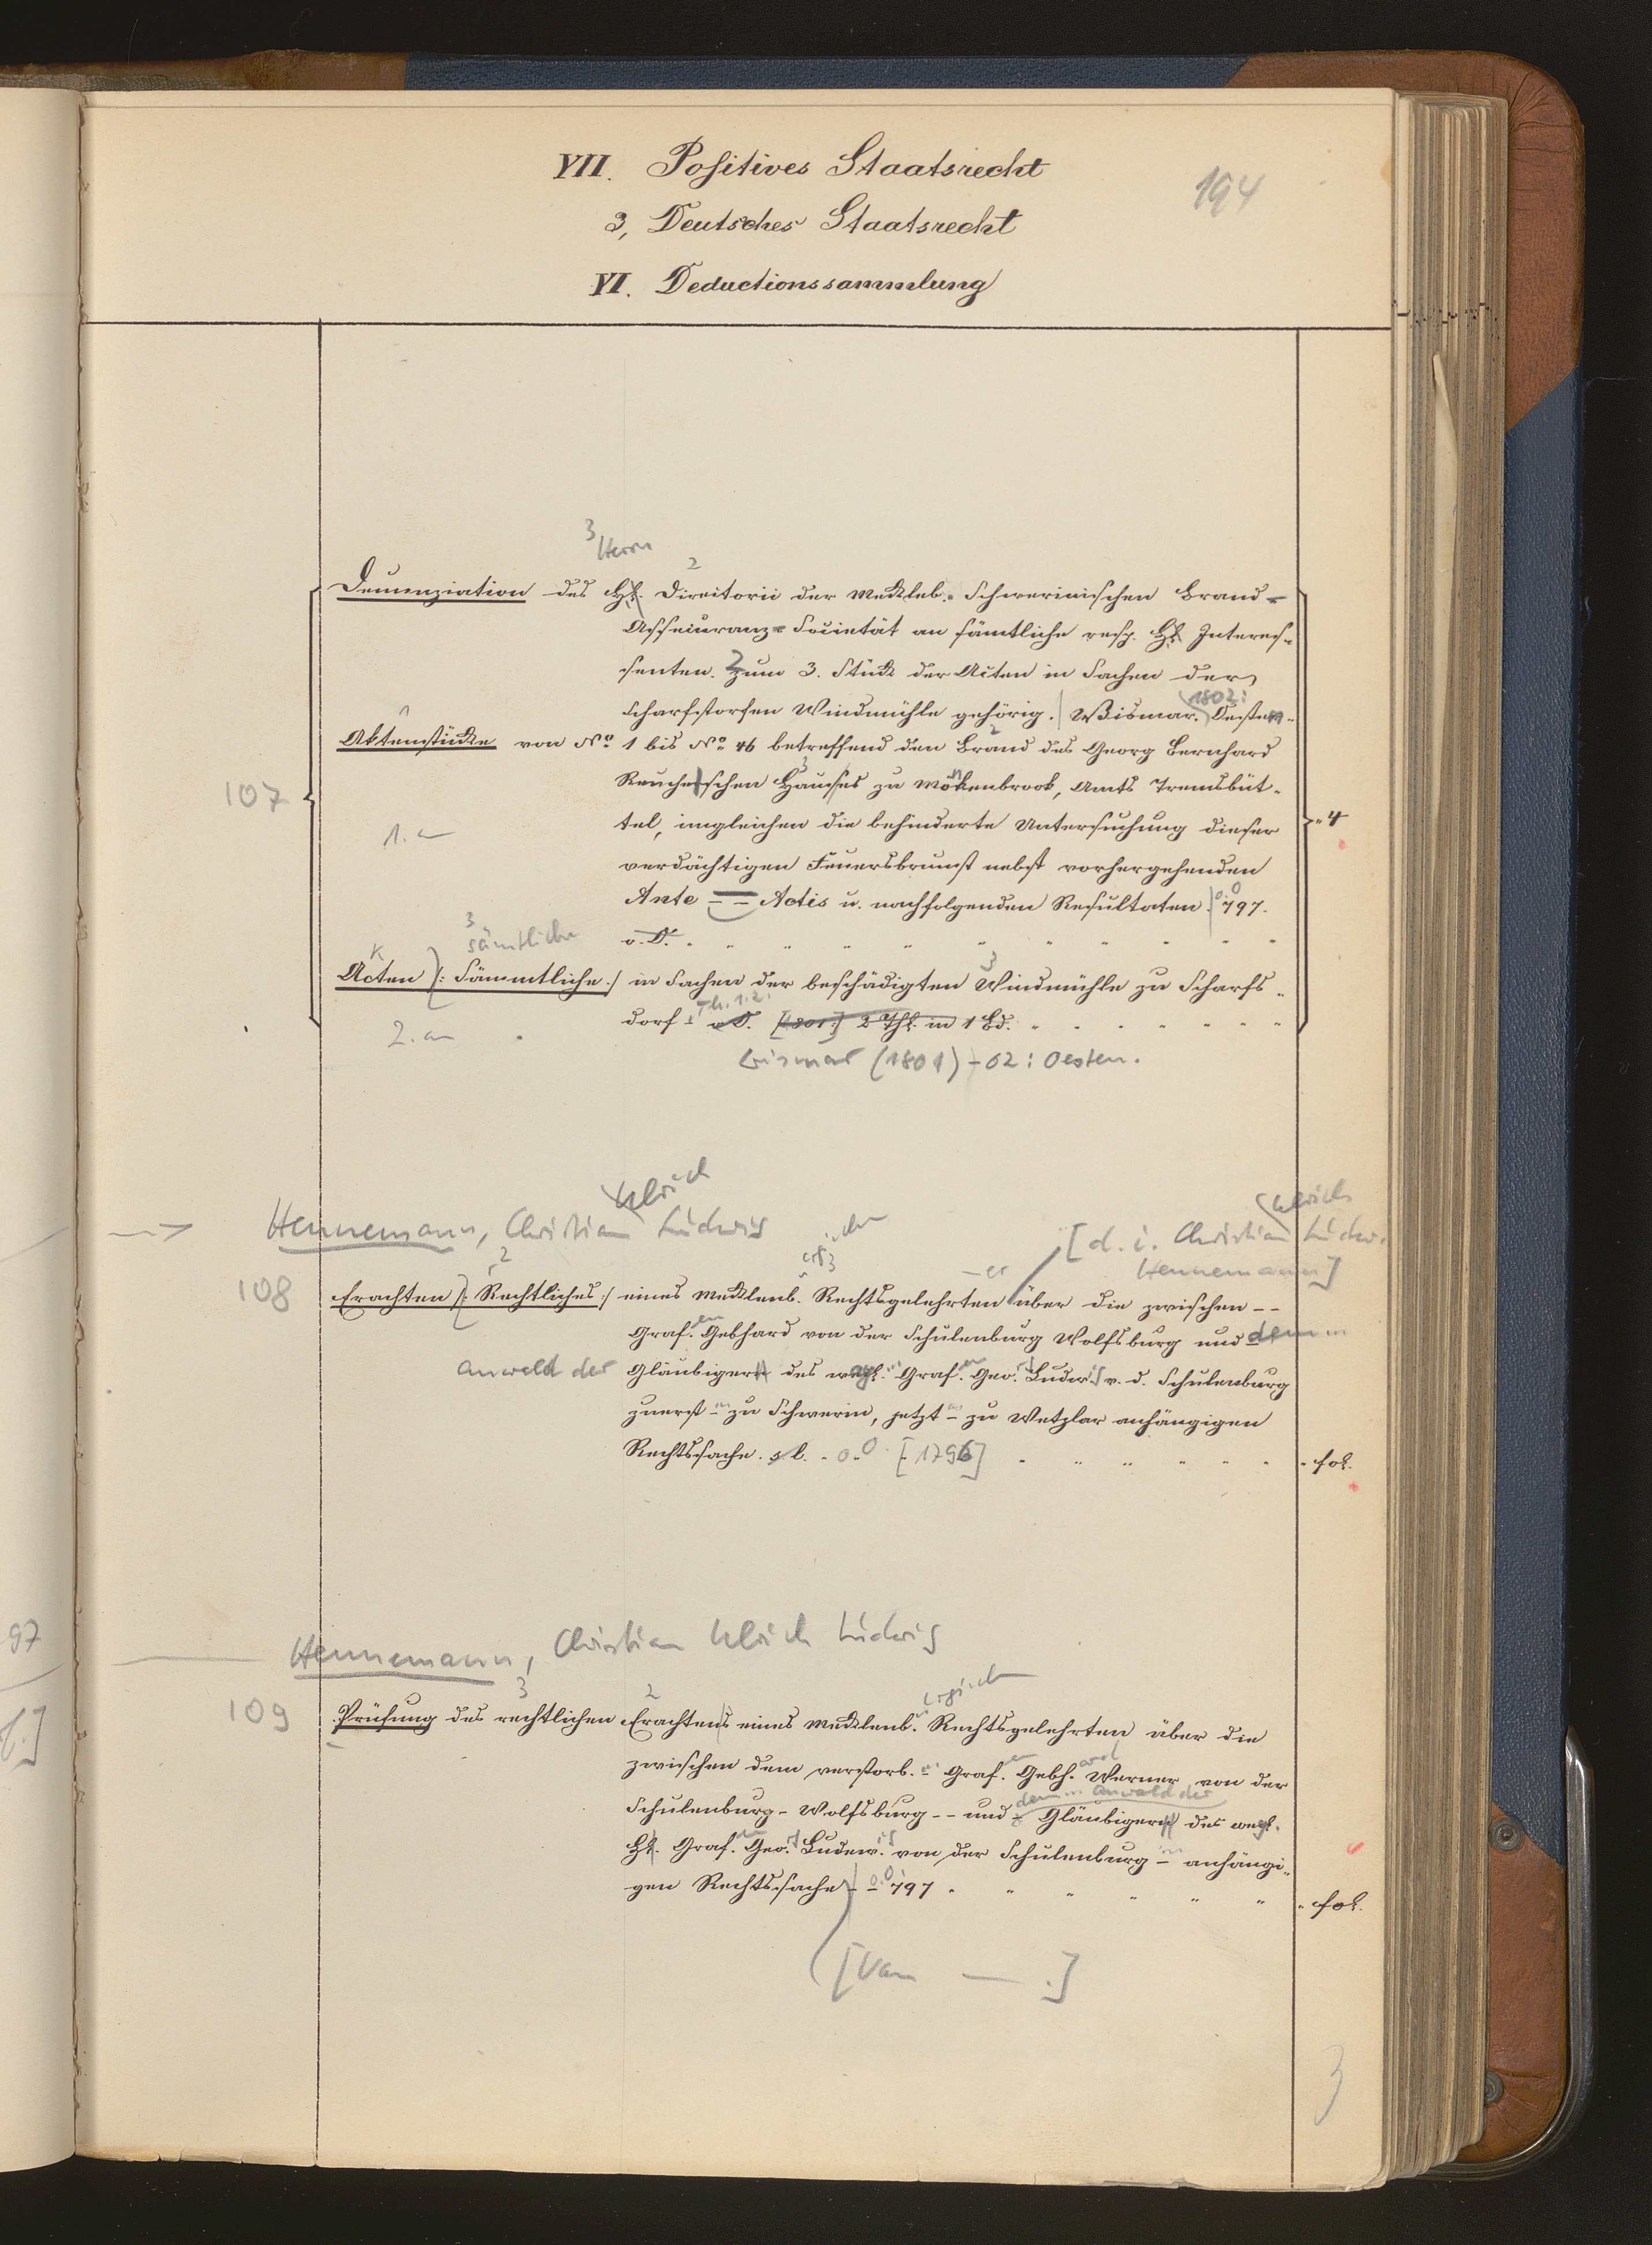 VII. Positives Staatsrecht
194
3, Deutsches Staatsrecht
VI. Deductionssammlung
3 Herrn
2
Denunziation des HE. Direitorii der Meckleb. Schwerinischen Brand-
Asseiuranz-Societät an sämtliche resp. HE Interes-
senten. Zum 3. Stück der Acten in Sachen der
Scharfstorfen Windmühle gehörig. Wismar. 1802: Oesten.
Aktenstücke von No 1 bis No 46 betreffend den Brand des Georg Bernhard
107
Reucheschen Hauses zu Mönkenbrook, Amts Tremsbüt-
1.
tel, imgleichen die behinderte Untersuchung dieser
4
verdächtigen Feuersbrunst nebst vorhergehenden
Ante == Actis u. nachfolgenden Resultaten. o.O 797.
3 sämtliche
o. O.
Acten /: Sämmtliche :/ in Sachen der beschädigten Windmühle zu Scharfs-
Th. 1.2.
dorf o O. [1801.] 2 Thl. in 1 Bd.
2.
Wismar (1801)-02: Oesten.
Ulrich
Hennemann, Christian Ludwig
[d. i. Christian Ulrich Ludw.
Hennemann]
108
Erachten /: Rechtliches :/ eines Mecklenb. Rechtsgelehrten über die zwischen --
Graf. Gebhard von der Schulenburg Wolfsburg und dem ...
Anwald der Gläubigern des weyl. Graf. Geo. Ludw. v. d. Schulenburg
zuerst - zu Schwerin, jetzt - zu Wetzlar anhängigen
Rechtssache. s. l. o.O. [1796]
fol.
97
Hennemann, Christian Ulrich Ludwig
3 2
109
Prüfung des rechtlichen Erachtens eines Mecklenb. Rechtsgelehrten über die
zwischen dem verstorb. Graf. Gebh. Werner von der
dem ... Anwald der
Schulenburg-Wolfsburg -- und Gläubigern des weyl.
HE. Graf. Geo. Ludew. von der Schulenburg - anhängi-
gen Rechtssache - o.O 797
fol.
[Von — .]
3